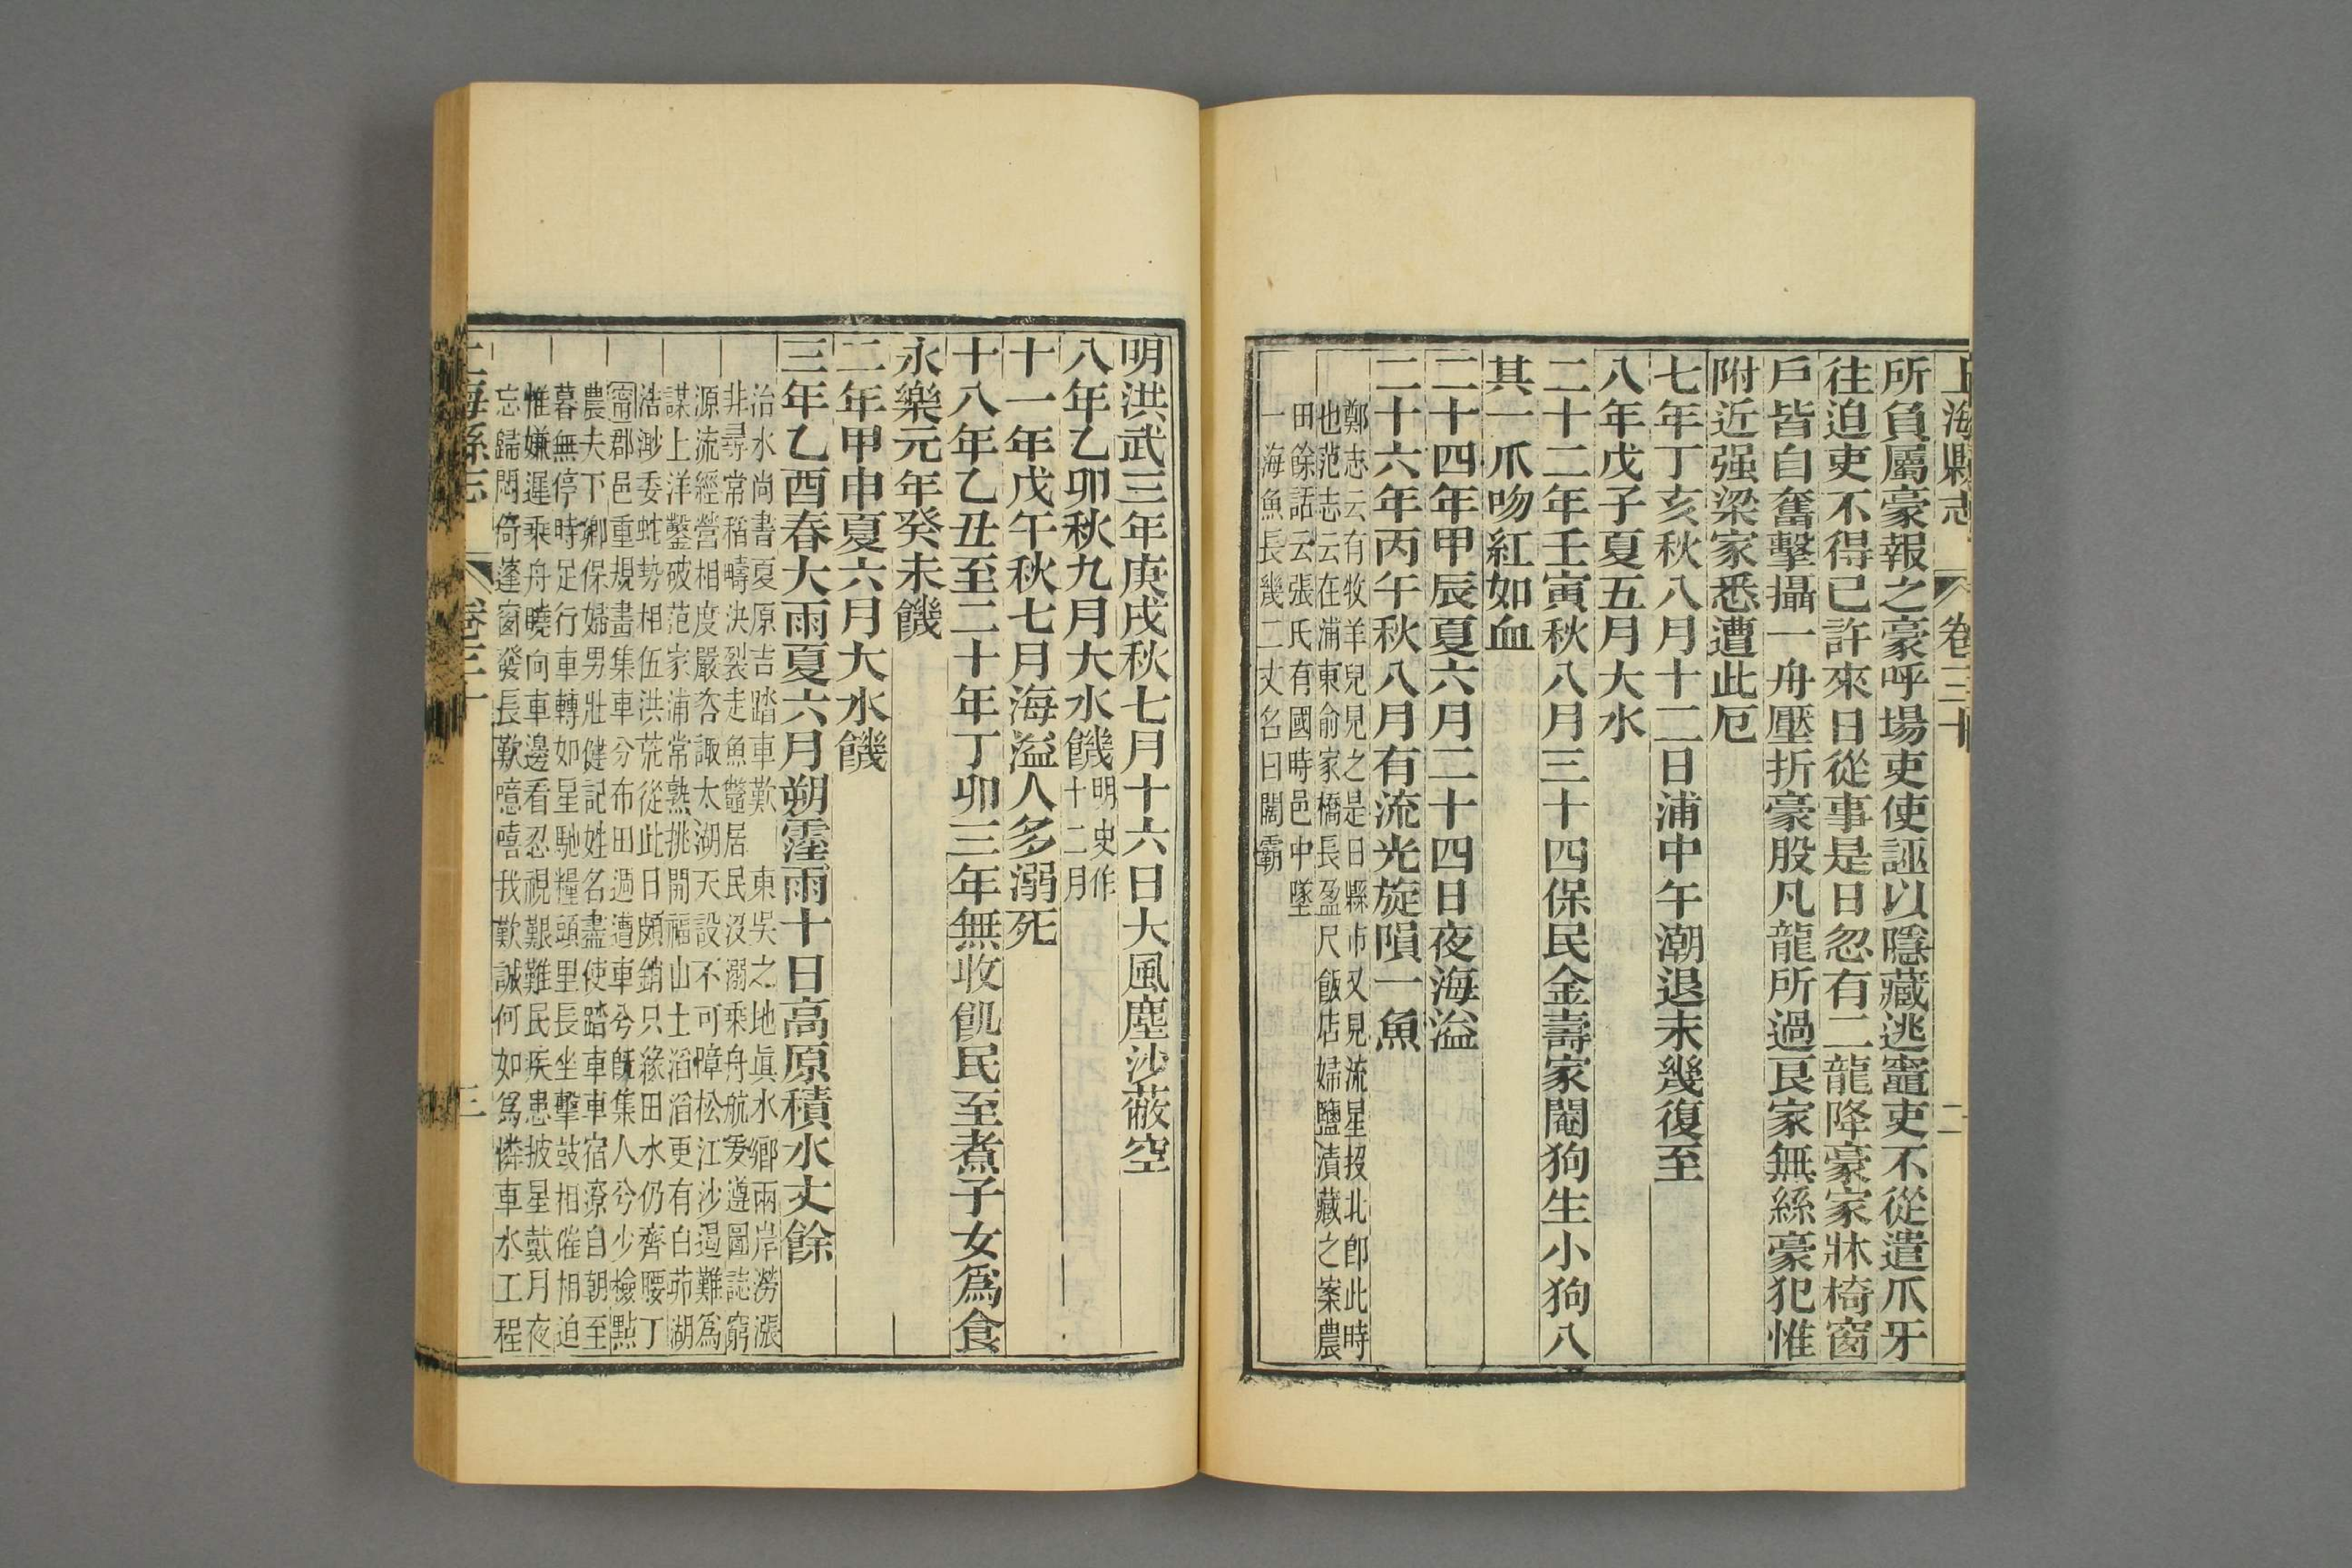 上海縣志 卷三十 二
所負屬豪報之豪呼場吏使誣以隱藏逃竈吏不從遣爪牙
往迫吏不得已許來日從事是日忽有二龍降豪家牀椅窗
戶皆自奮擊攝一舟壓折豪股凡龍所過民家無絲豪犯惟
附近强梁家悉遭此厄
七年丁亥秋八月十二日浦中午潮退未幾復至
八年戊子夏五月大水
二十二年壬寅秋八月三十四保民金壽家閹狗生小狗八
其一爪吻紅如血
二十四年甲辰夏六月二十四日夜海溢
二十六年丙午秋八月有流光旋隕一魚
鄭志云有牧羊兒見之是日縣市又見流星投北卽此時
也范志云在浦東俞家橋長盈尺飯店婦鹽漬藏之案農
田餘話云張氏有國時邑中墜
一海魚長幾二丈名曰闊霸
明洪武三年庚戌秋七月十六日大風塵沙蔽空
八年乙卯秋九月大水饑明史作
十二月
十一年戊午秋七月海溢人多溺死
十八年乙丑至二十年丁卯三年無收飢民至煮子女爲食
永樂元年癸未饑
二年甲申夏六月大水饑
三年乙酉春大雨夏六月朔霪雨十日高原積水丈餘
治水尚書夏原吉踏車歎 東吳之地眞水鄉兩岸澇漲
非尋常稻疇決裂走魚鼈居民沒溺乘舟航爰遵圖誌窮
源流經營相度嚴咨諏太湖天設不可障松江沙遏難爲
謀上洋鑿破范家浦常熟挑開福山土滔滔更有白茆湖
浩渺委蛇勢相伍洪荒從此日頗銷只緣田水仍齊腰丁
甯郡邑重規畫集車分布田週遭車兮旣集人兮少檢點
農夫下鄉保婦男壯健記姓名盡使踏車車宿潦自朝至
暮無停時足行車轉如星馳糧頭里長坐擊鼓相催相迫
惟嫌遲乘舟曉向車邊看忍視艱難民疾患披星戴月夜
忘歸悶倚蓬窗發長歎噫嘻我歎誠何如爲憐車水工程
上海縣志 卷三十 三